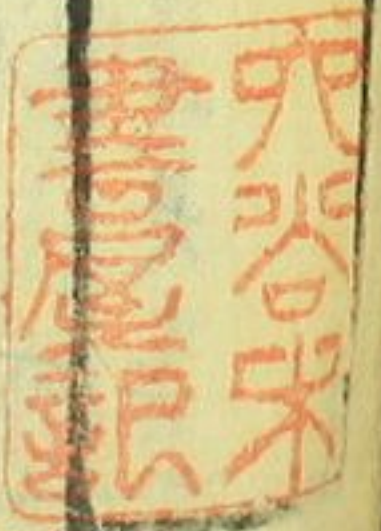 大谷木
書屋記